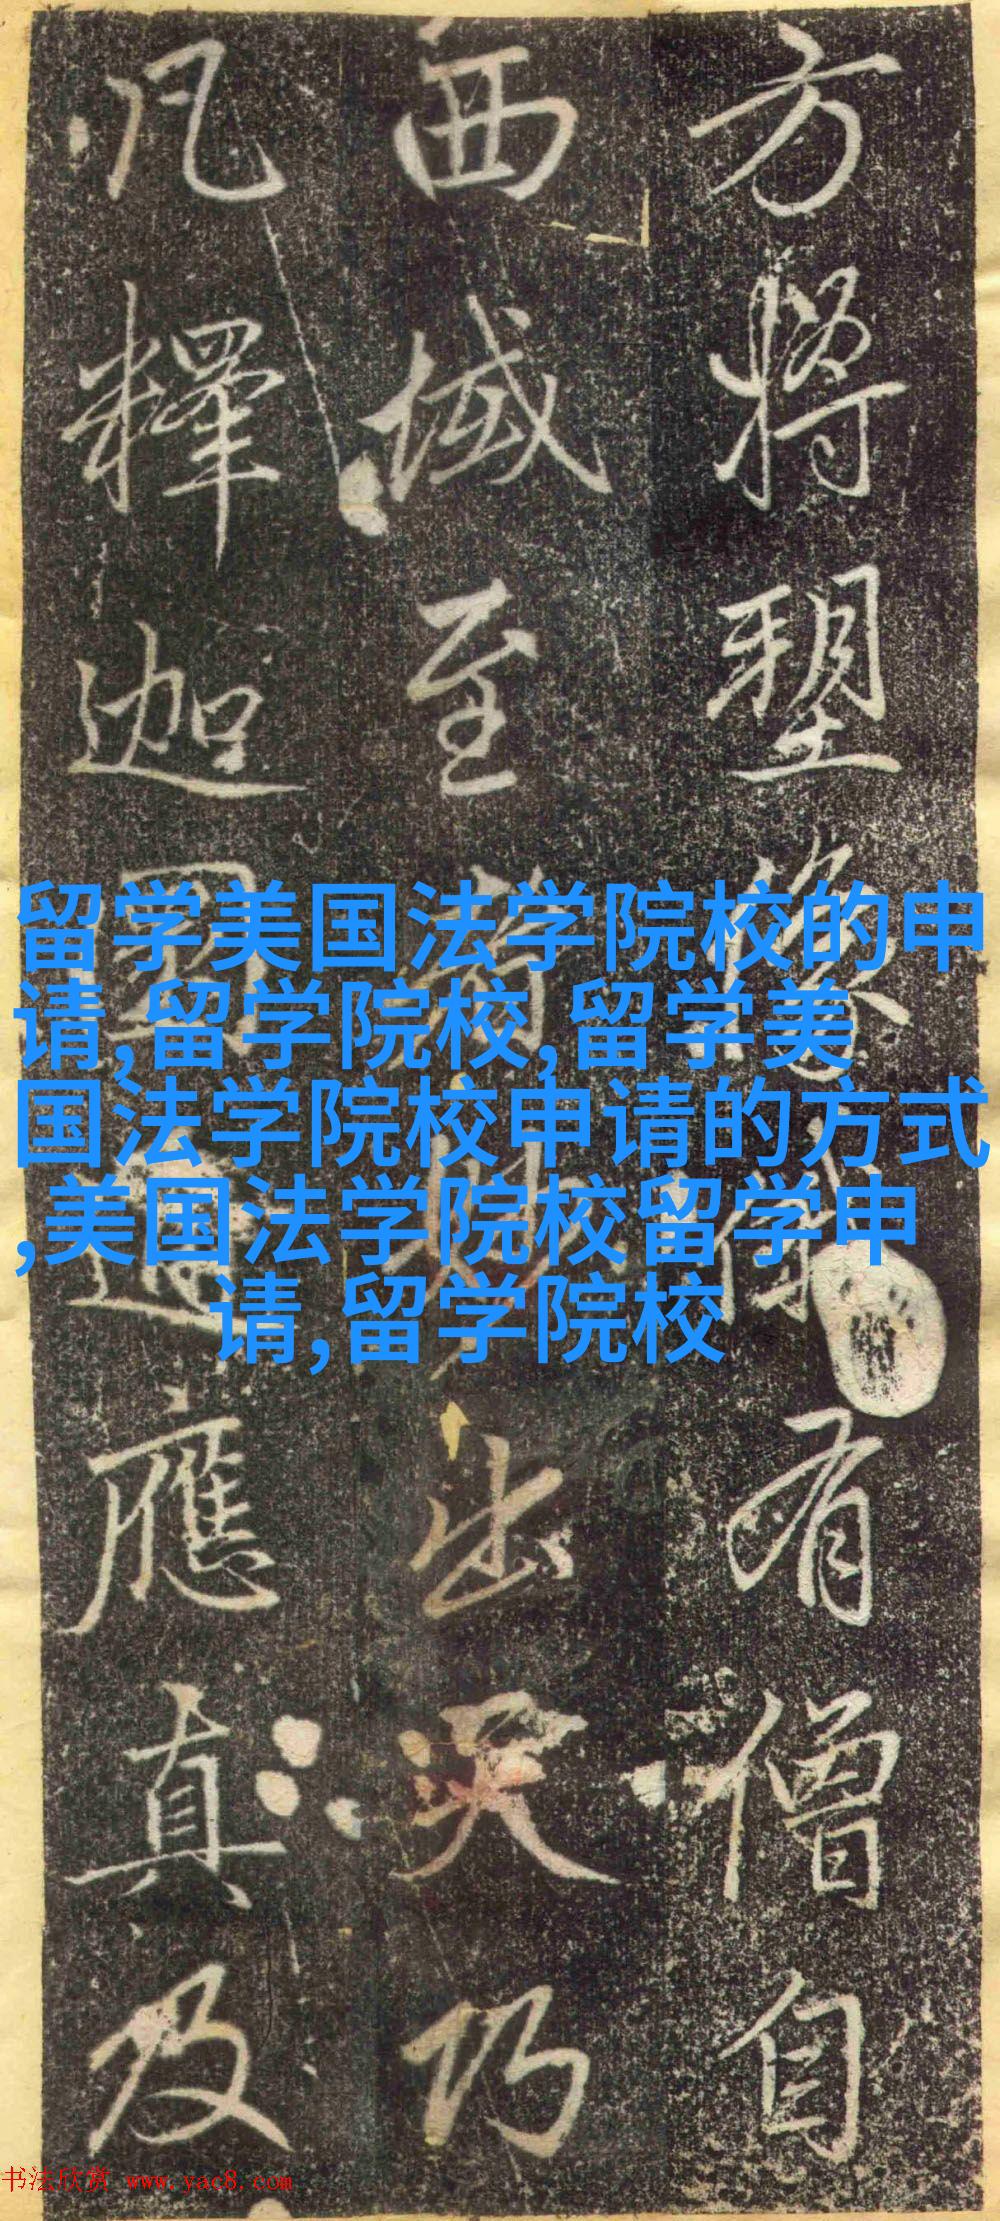 方將塑像有僧自
西域至出天巧
凡釋迦應真及
留学美国法学院校的申
请,留学院校,留学美
国法学院校申请的方式
,美国法学院校留学申
请,留学院校
书法欣赏 www.yac8.com